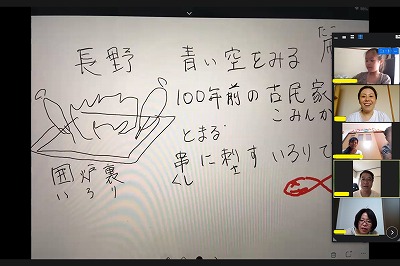 長野
青い空をみる
100年前の古民家
こみんか
とまる
串に刺す いろりで
くし さ
囲炉裏
いろり